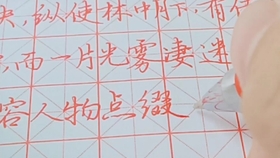 纵使林中月下,有佳
而一片光雾凄迷
容人物点缀